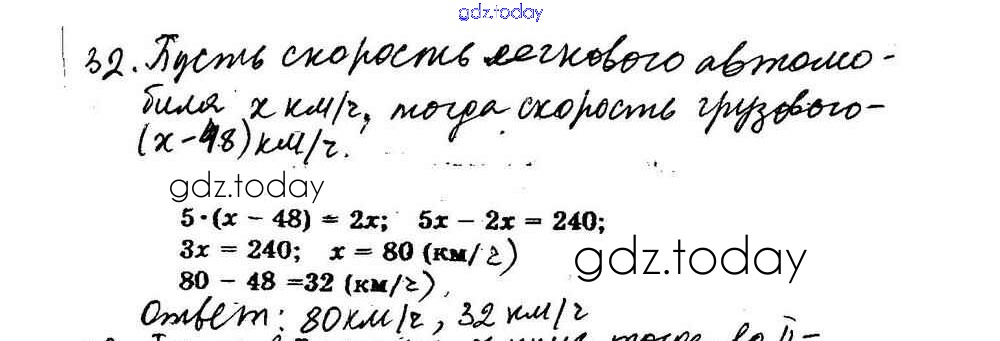 gdz.today
32. Пусть скорость легкового автомо-
биля x км/ч, тогда скорость грузового-
(x-48)км/ч.
gdz.today
5·(x − 48) = 2x; 5x − 2x = 240;
3x = 240; x = 80 (км/ч)
gdz.today
80 − 48 =32 (км/ч),
Ответ: 80км/ч, 32 км/ч